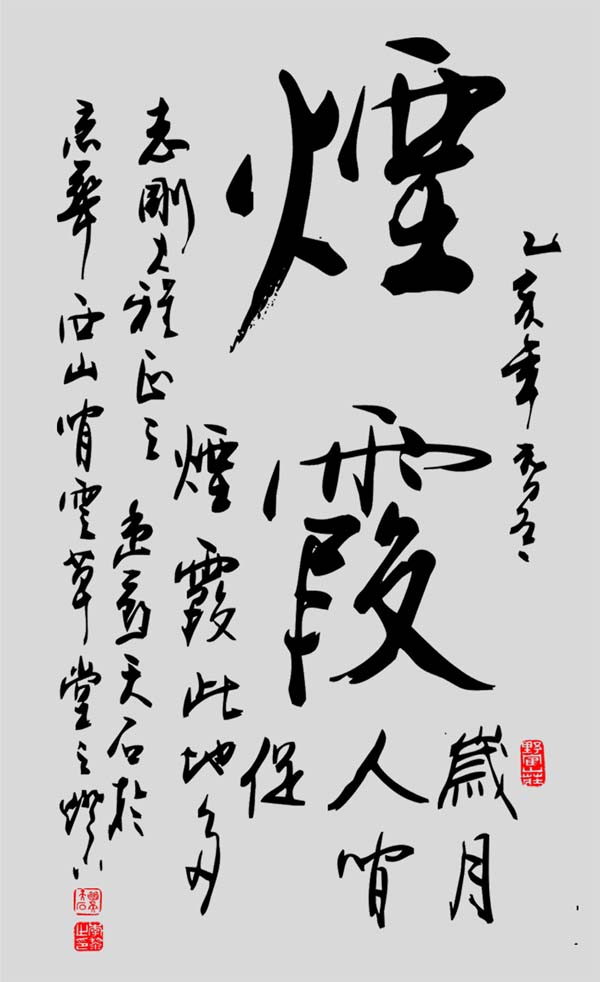 乙亥年
煙霞
歲月
人間
促
煙霞此地多
志剛大雅正之
天石於
京華西山閒雲草堂之燈下